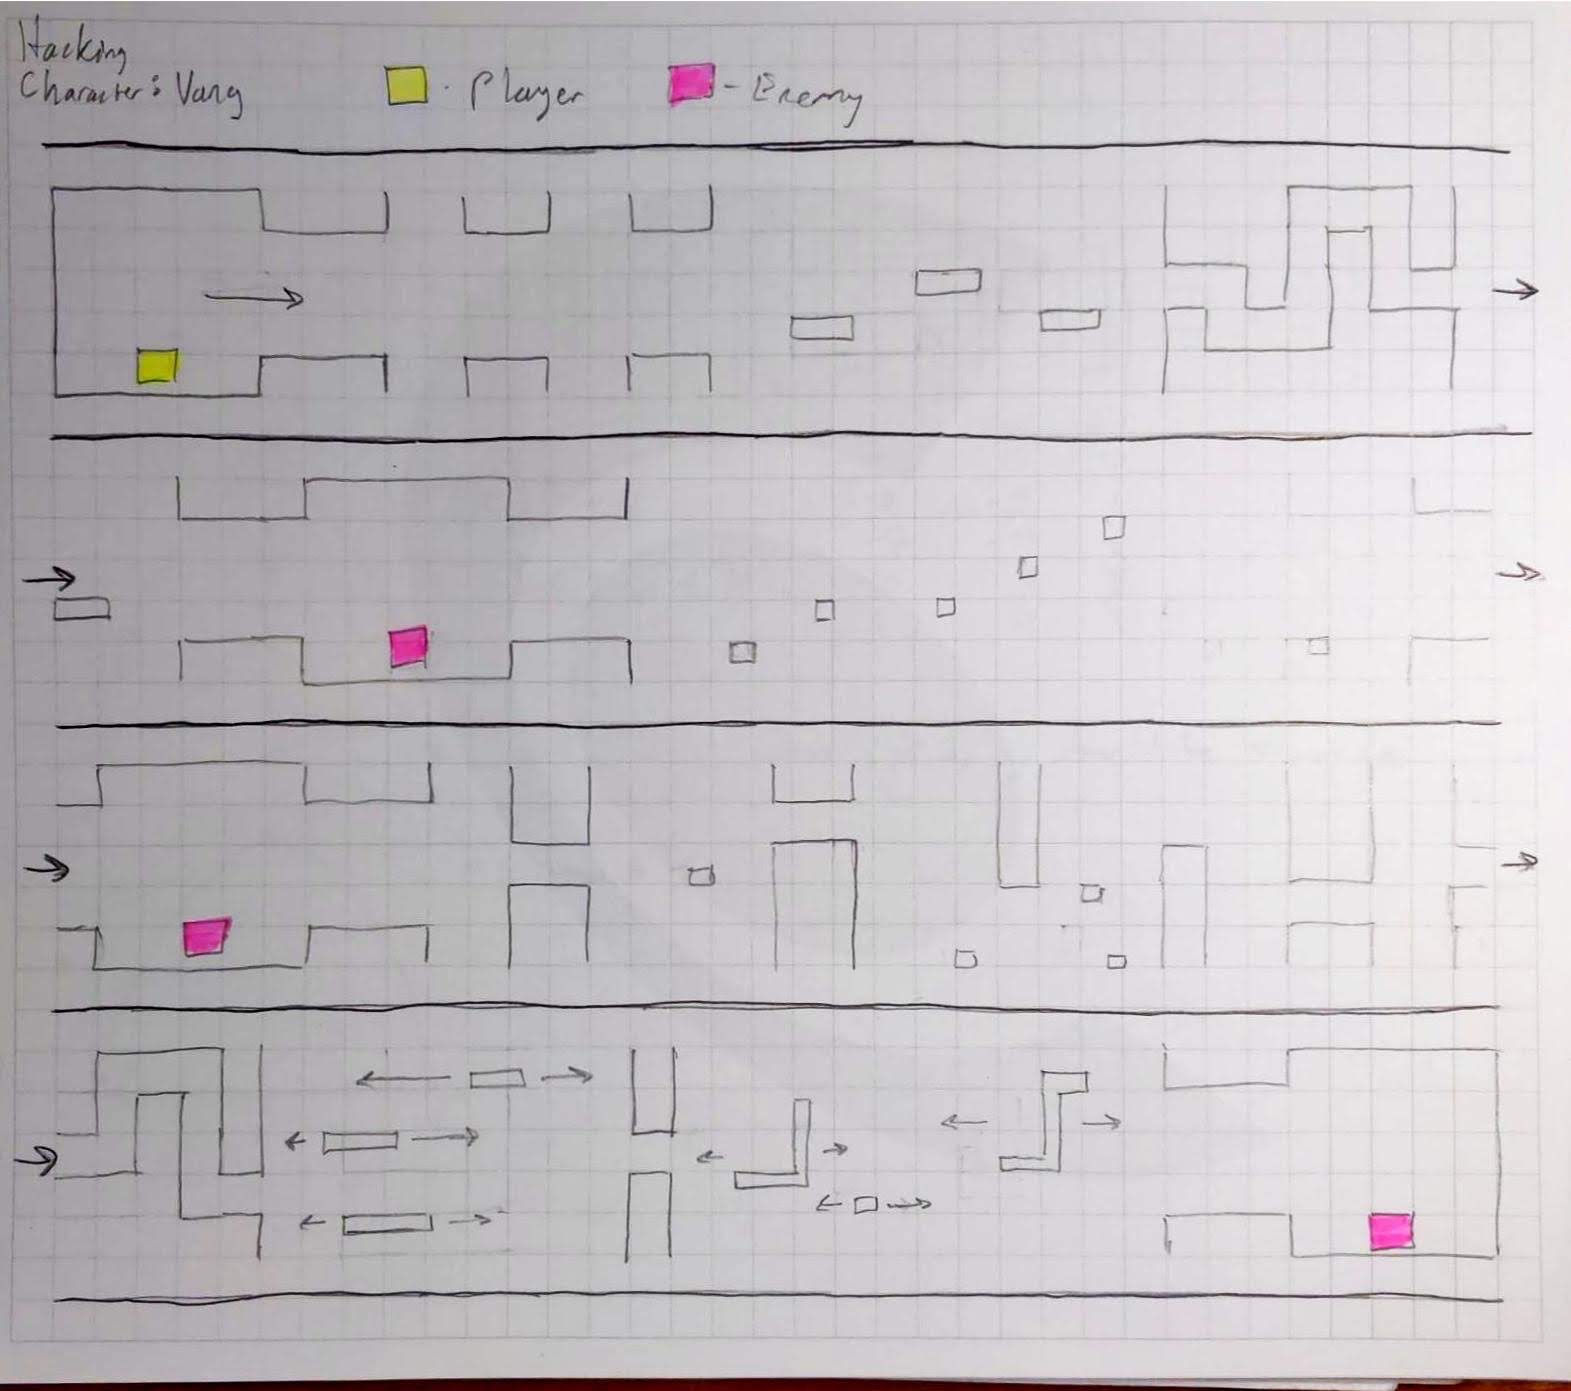 Hacking
Character: Vang
- Player
- Enemy